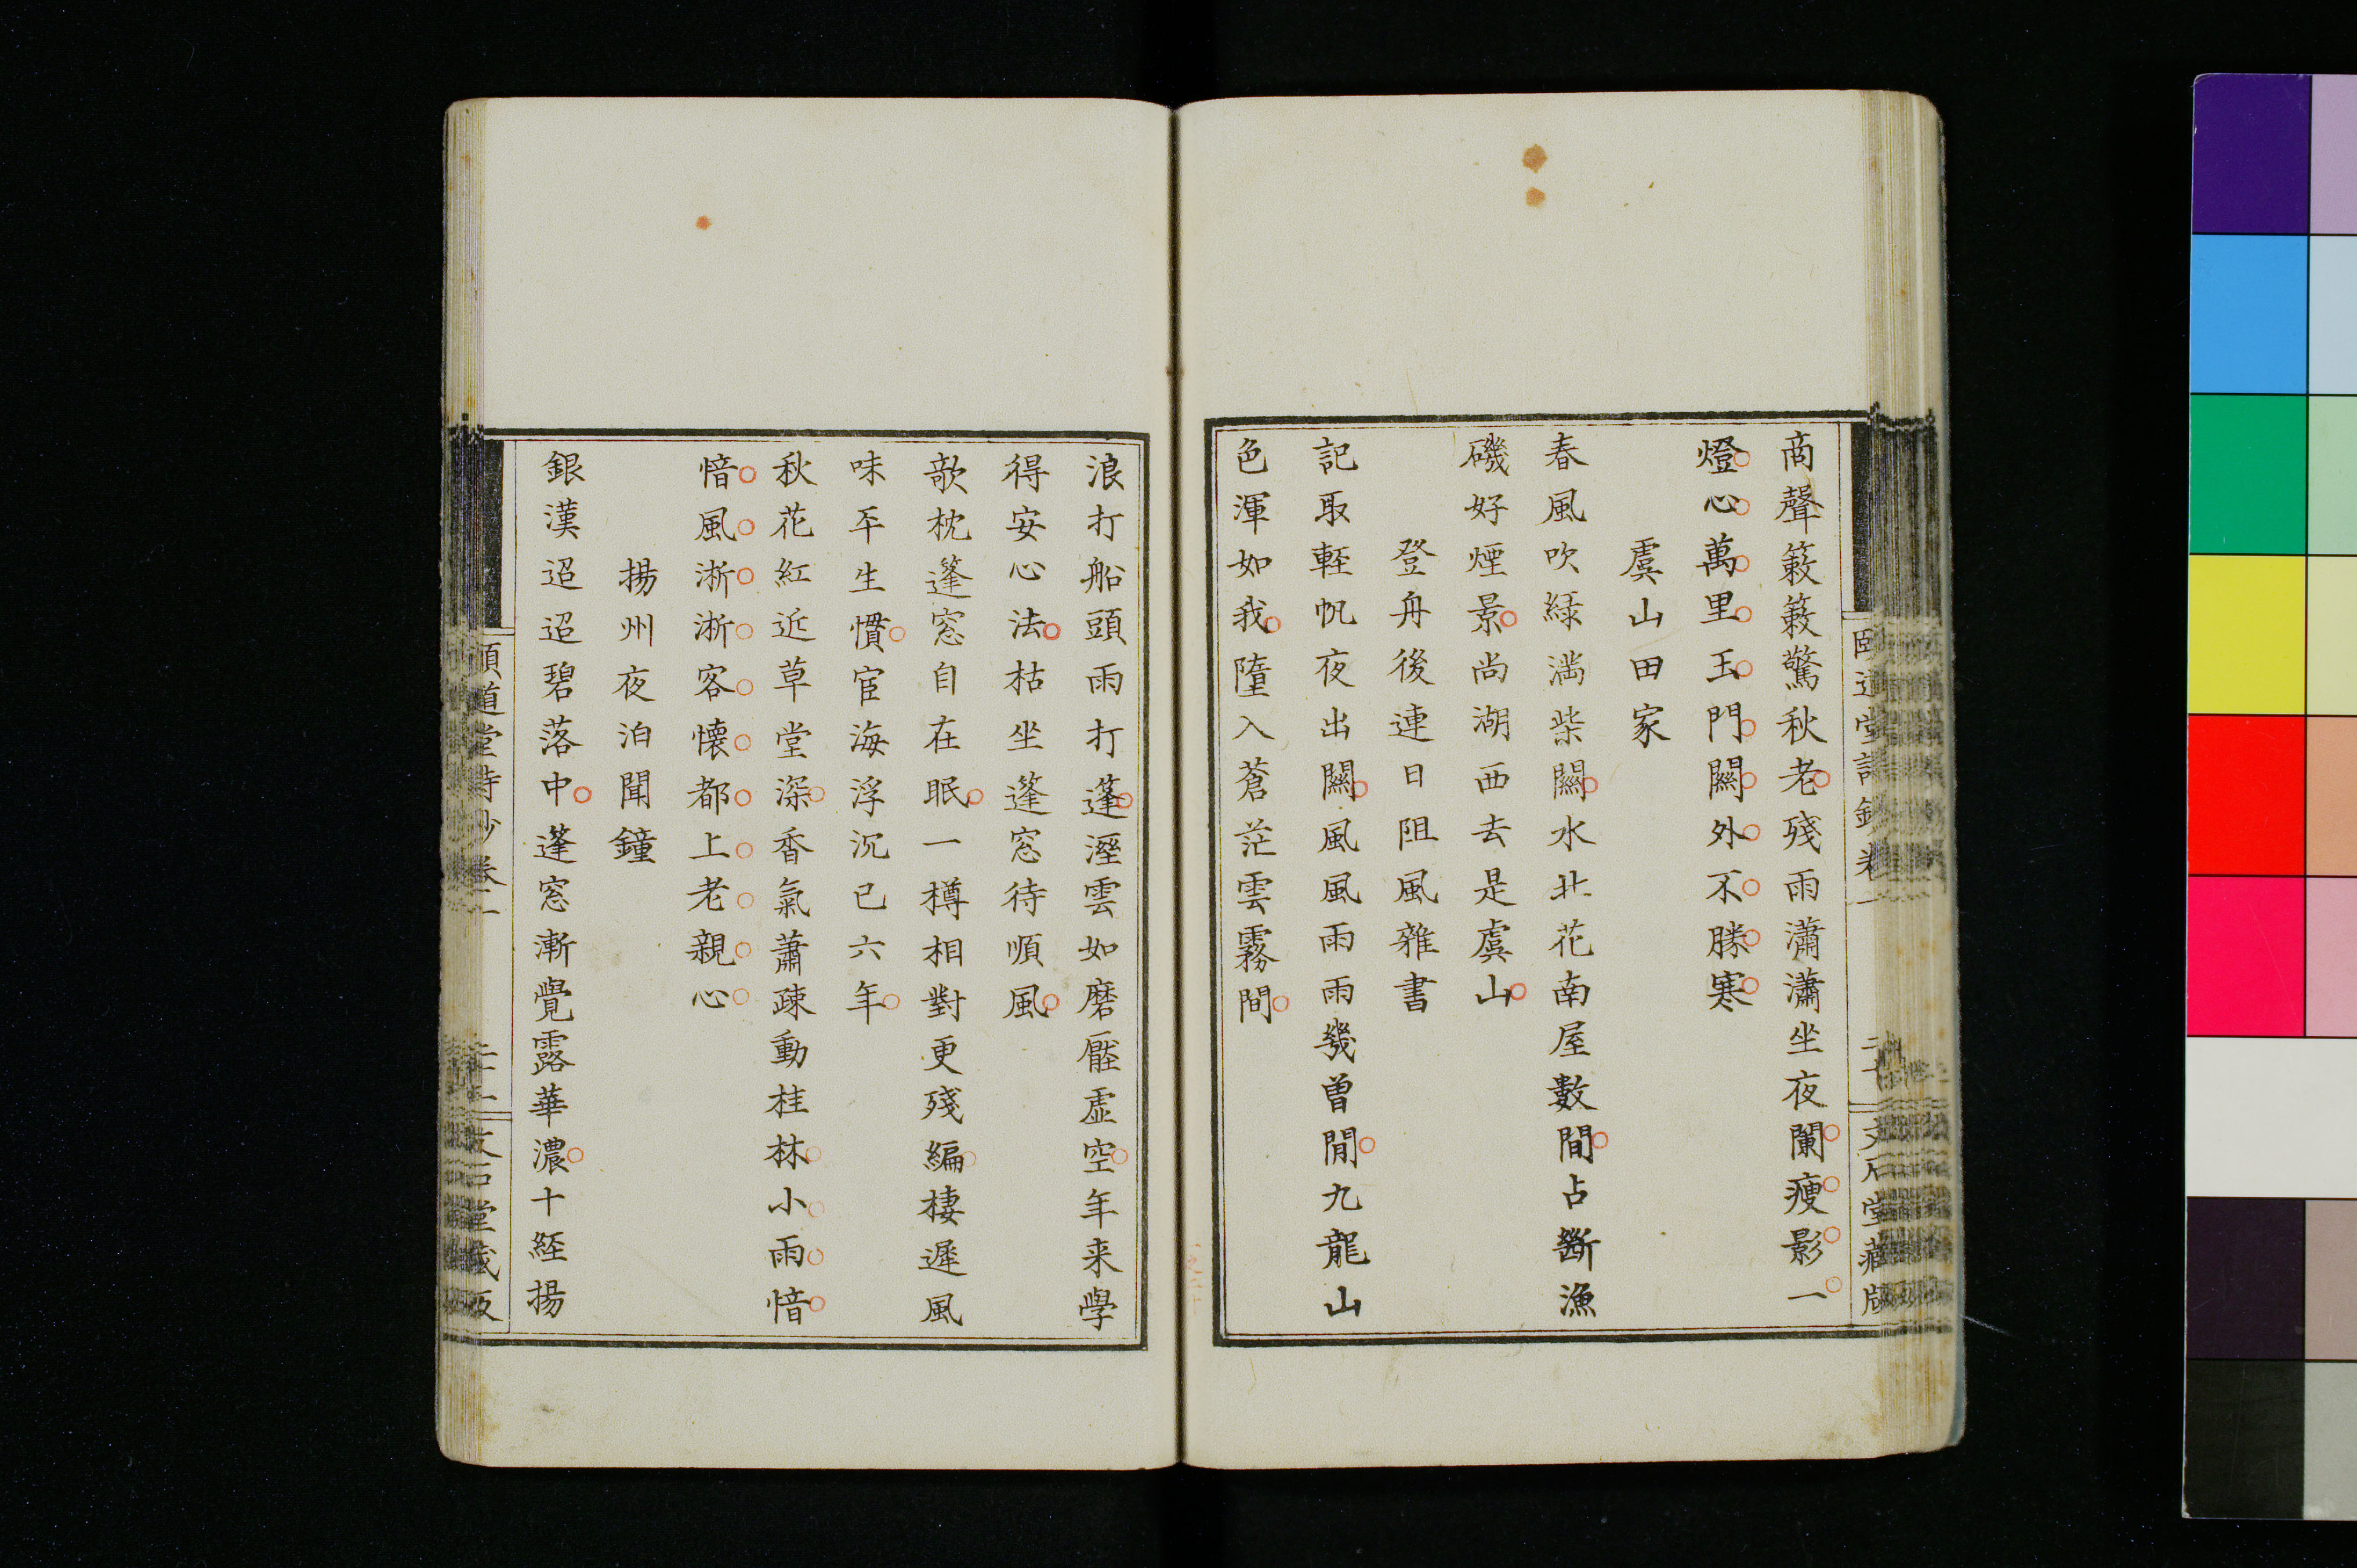 商聲簌簌驚秋老殘雨瀟瀟坐夜闌瘦影一
燈心萬里玉門關外不勝寒
虞山田家
春風吹綠滿柴關水北花南屋數間占斷漁
磯好煙景尚湖西去是虞山
登舟後連日阻風雜書
記取輕帆夜出關風風雨雨幾曾閒九龍山
色渾如我墮入蒼茫雲霧間
浪打船頭雨打篷溼雲如磨壓虛空年来學
得安心法枯坐篷窓待順風
欹枕篷窓自在眠一樽相對更殘編棲遲風
味平生慣宦海浮沉已六年
秋花紅近草堂深香氣蕭疎動桂林小雨愔
愔風淅淅客懷都上老親心
揚州夜泊聞鐘
銀漢迢迢碧落中篷窓漸覺露華濃十経揚
頤道堂詩鈔卷一
文石堂藏版